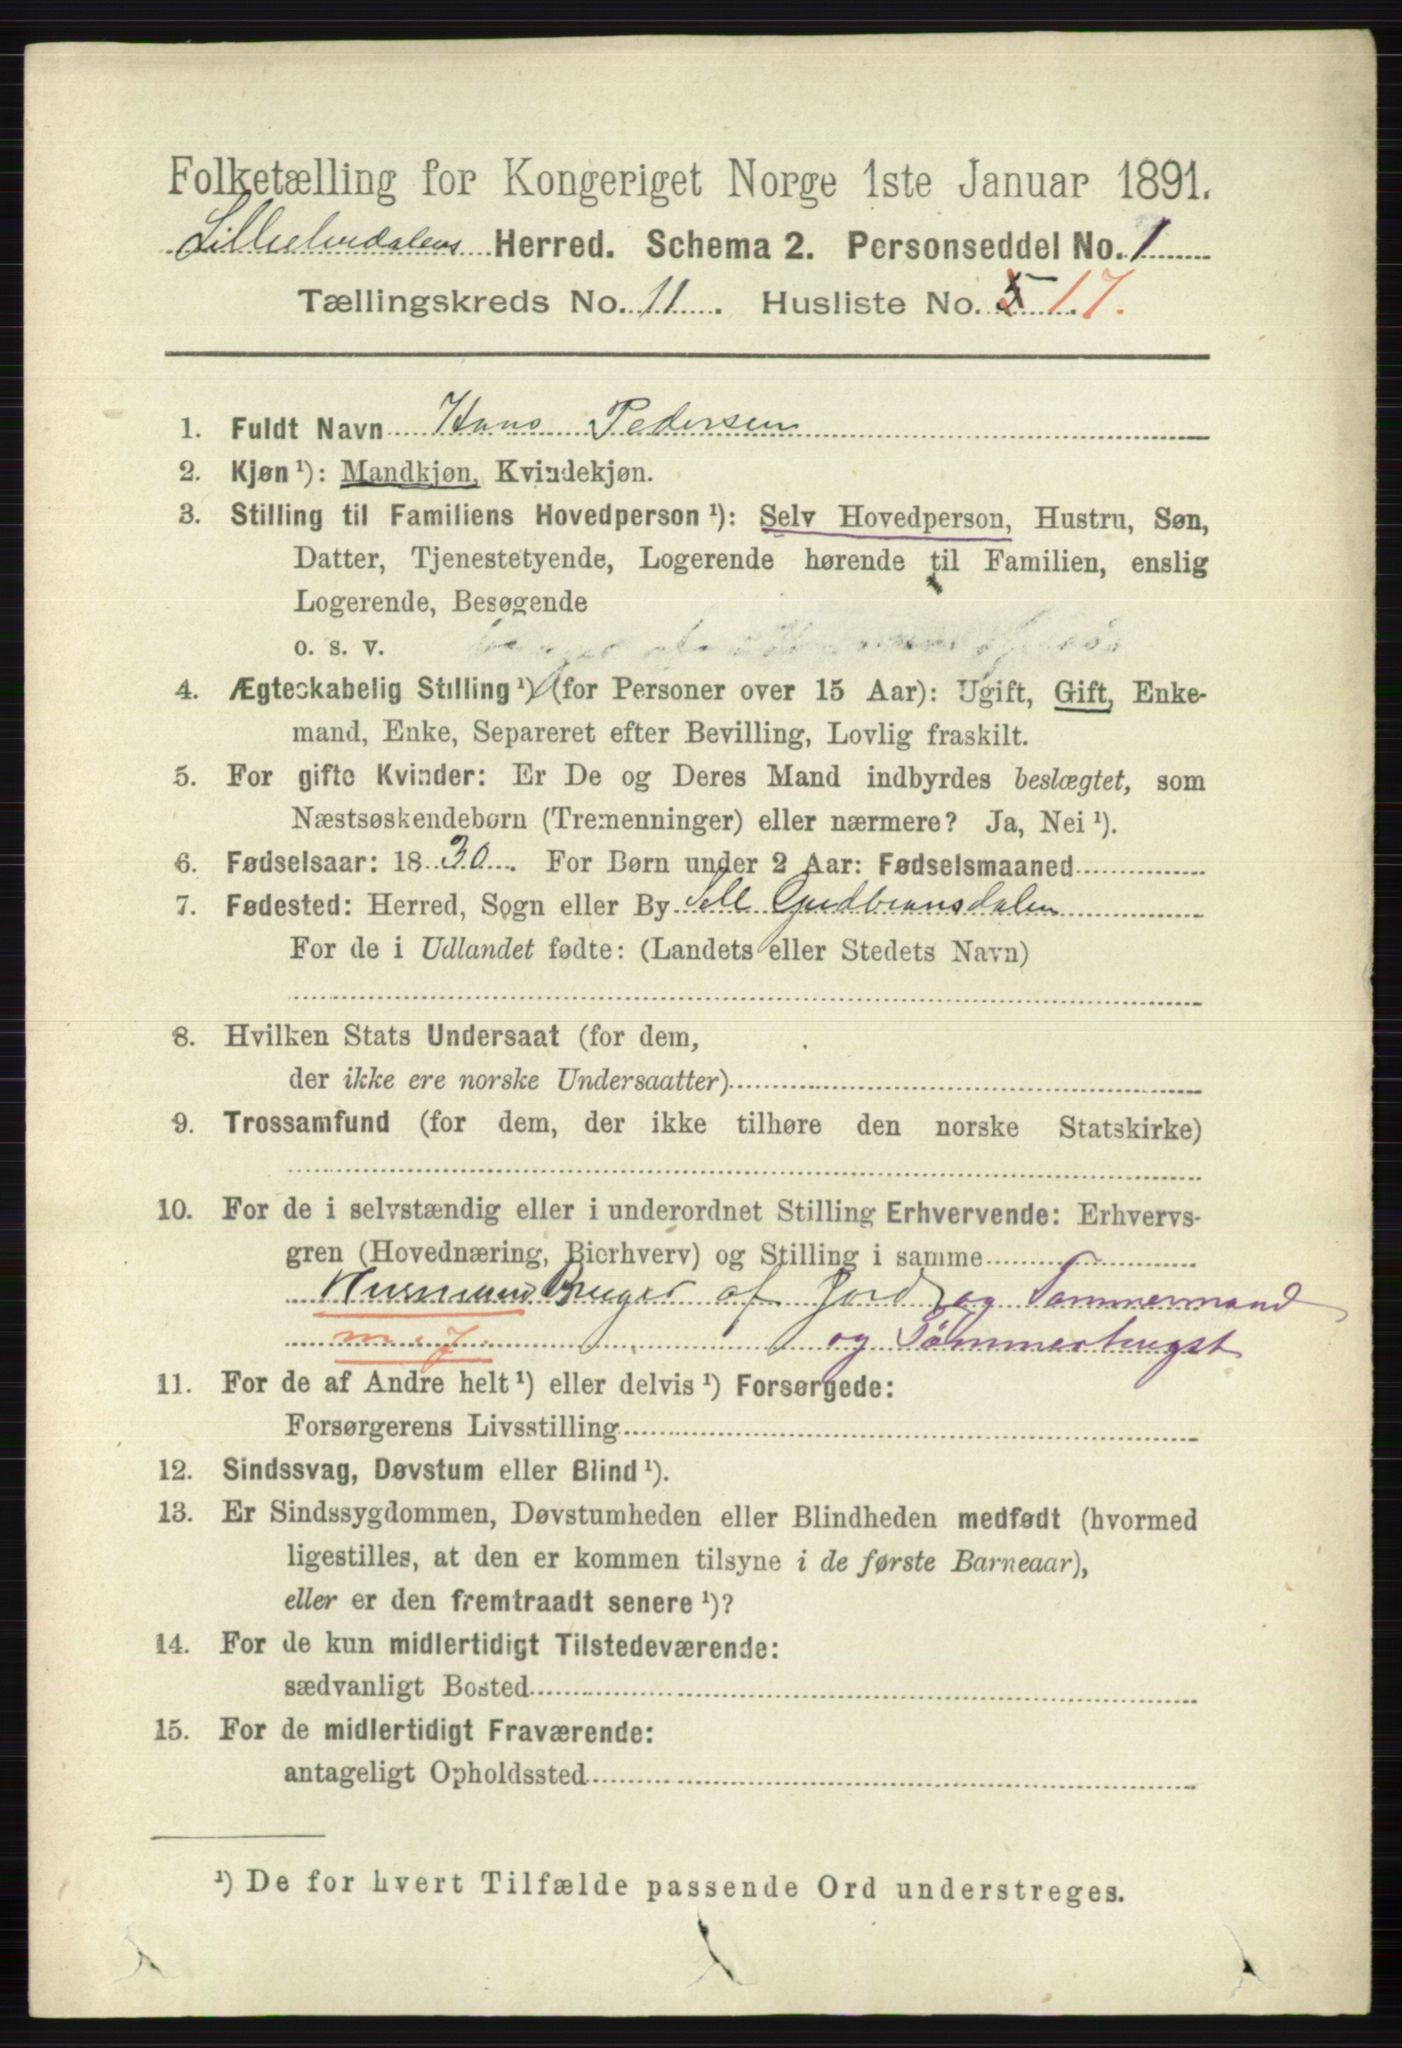 Folketælling for Kongeriget Norge 1ste Januar 1891.
Lilleelvedalens Herred. Schema 2. Personseddel No. 1
Tællingskreds No. 11. Husliste No. 17.
1. Fuldt Navn Hans Pedersen
2. Kjøn ¹): Mandkjøn, Kvindekjøn.
3. Stilling til Familiens Hovedperson ¹): Selv Hovedperson, Hustru, Søn,
Datter, Tjenestetyende, Logerende hørende til Familien, enslig
Logerende, Besøgende
o. s. v.
4. Ægteskabelig Stilling ¹) (for Personer over 15 Aar): Ugift, Gift, Enke-
mand, Enke, Separeret efter Bevilling, Lovlig fraskilt.
5. For gifte Kvinder: Er De og Deres Mand indbyrdes beslægtet, som
Næstsøskendebørn (Tremenninger) eller nærmere? Ja, Nei ¹).
6. Fødselsaar: 1830. For Børn under 2 Aar: Fødselsmaaned
7. Fødested: Herred, Sogn eller By Sell Gudbransdalen
For de i Udlandet fødte: (Landets eller Stedets Navn)
8. Hvilken Stats Undersaat (for dem,
der ikke ere norske Undersaatter)
9. Trossamfund (for dem, der ikke tilhøre den norske Statskirke)
10. For de i selvstændig eller i underordnet Stilling Erhvervende: Erhvervs-
gren (Hovednæring, Bierhverv) og Stilling i samme
Husmand Bruger af Jord og Tømmermand
m. J. og Tømmerhugst
11. For de af Andre helt ¹) eller delvis ¹) Forsørgede:
Forsørgerens Livsstilling
12. Sindssvag, Døvstum eller Blind ¹).
13. Er Sindssygdommen, Døvstumheden eller Blindheden medfødt (hvormed
ligestilles, at den er kommen tilsyne i de første Barneaar),
eller er den fremtraadt senere ¹)?
14. For de kun midlertidigt Tilstedeværende:
sædvanligt Bosted
15. For de midlertidigt Fraværende:
antageligt Opholdssted
¹) De for hvert Tilfælde passende Ord understreges.